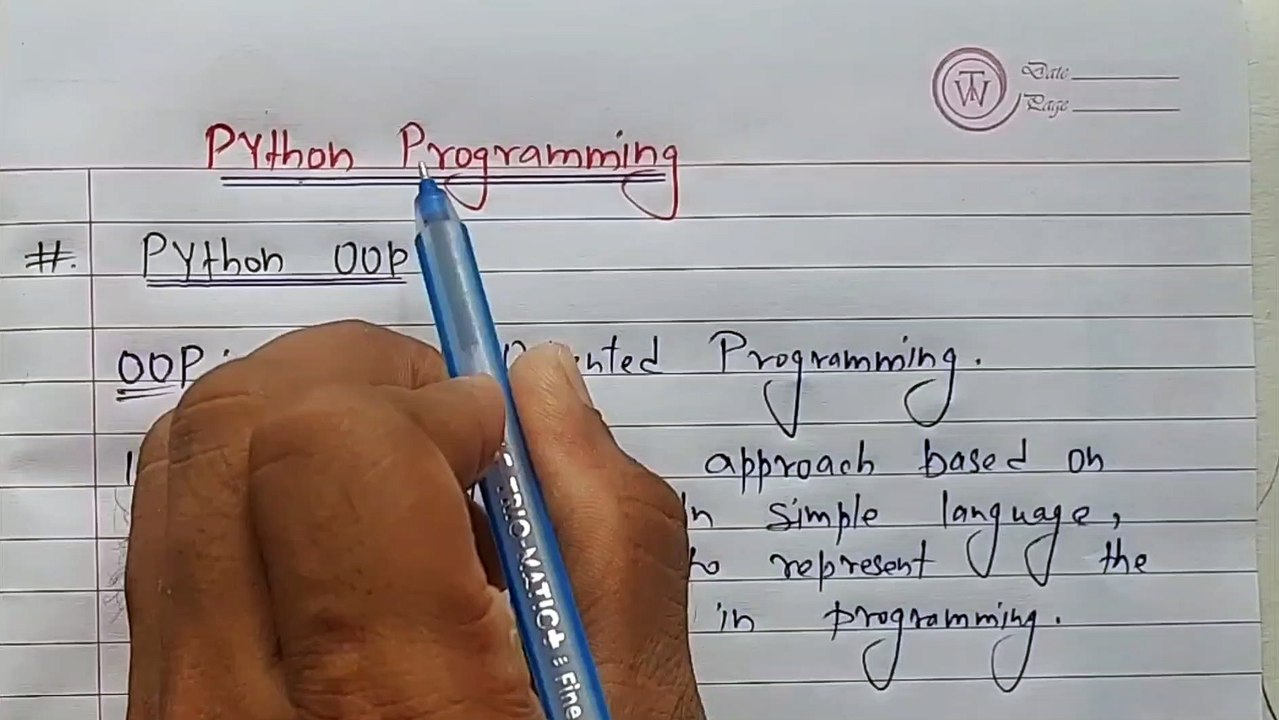 Date
Page
Python Programming
#. Python OOP
OOP : Oriented Programming.
approach based on
In simple language,
to represent the
in programming.
TRIO-MATIC+ : Fine